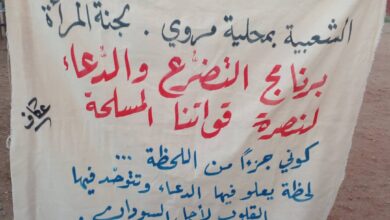 الشعبية بمحلية مروي . لجنة المرأة
برنامج التضرع والدعاء
لنصرة قواتنا المسلحة
كوني جزءًا من اللحظة ...
لحظة يعلو فيها الدعاء وتتوحد فيها
القلوب لأجل السودان .